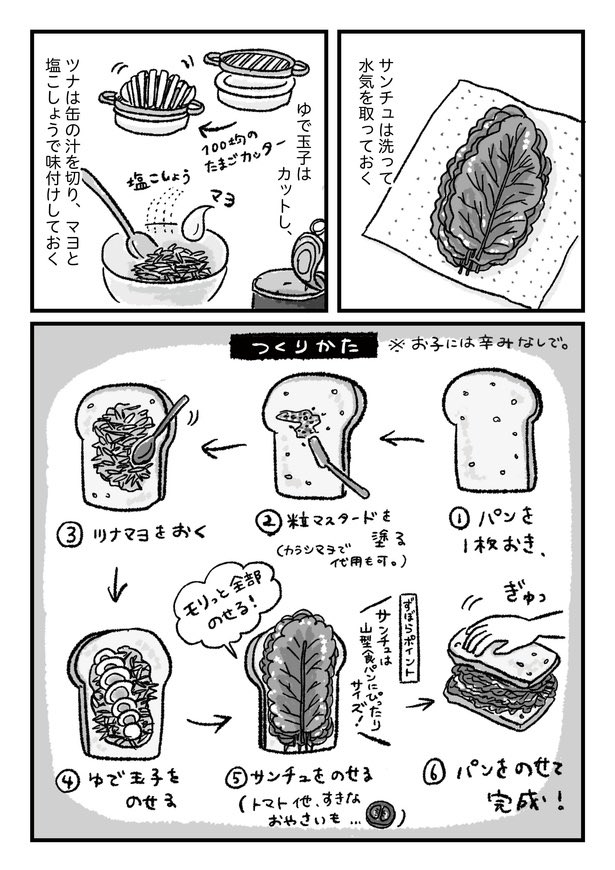 サンチュは洗って
水気を取っておく
ゆで玉子は
カットし、
100均の
たまごカッター
塩こしょう
マヨ
ツナは缶の汁を切り、マヨと
塩こしょうで味付けしておく
つくりかた
※お子には辛みなしで。
①パンを
1枚おき、
②粒マスタードを
塗る
(カラシマヨで
代用も可。)
③ツナマヨをおく
④ゆで玉子を
のせる
モリっと全部
のせる!
⑤サンチュをのせる
(トマト他、すきな
おやさいも…
)
ずぼらポイント
サンチュは
山型食パンにぴったり
サイズ!
ぎゅっ
⑥パンをのせて
完成!